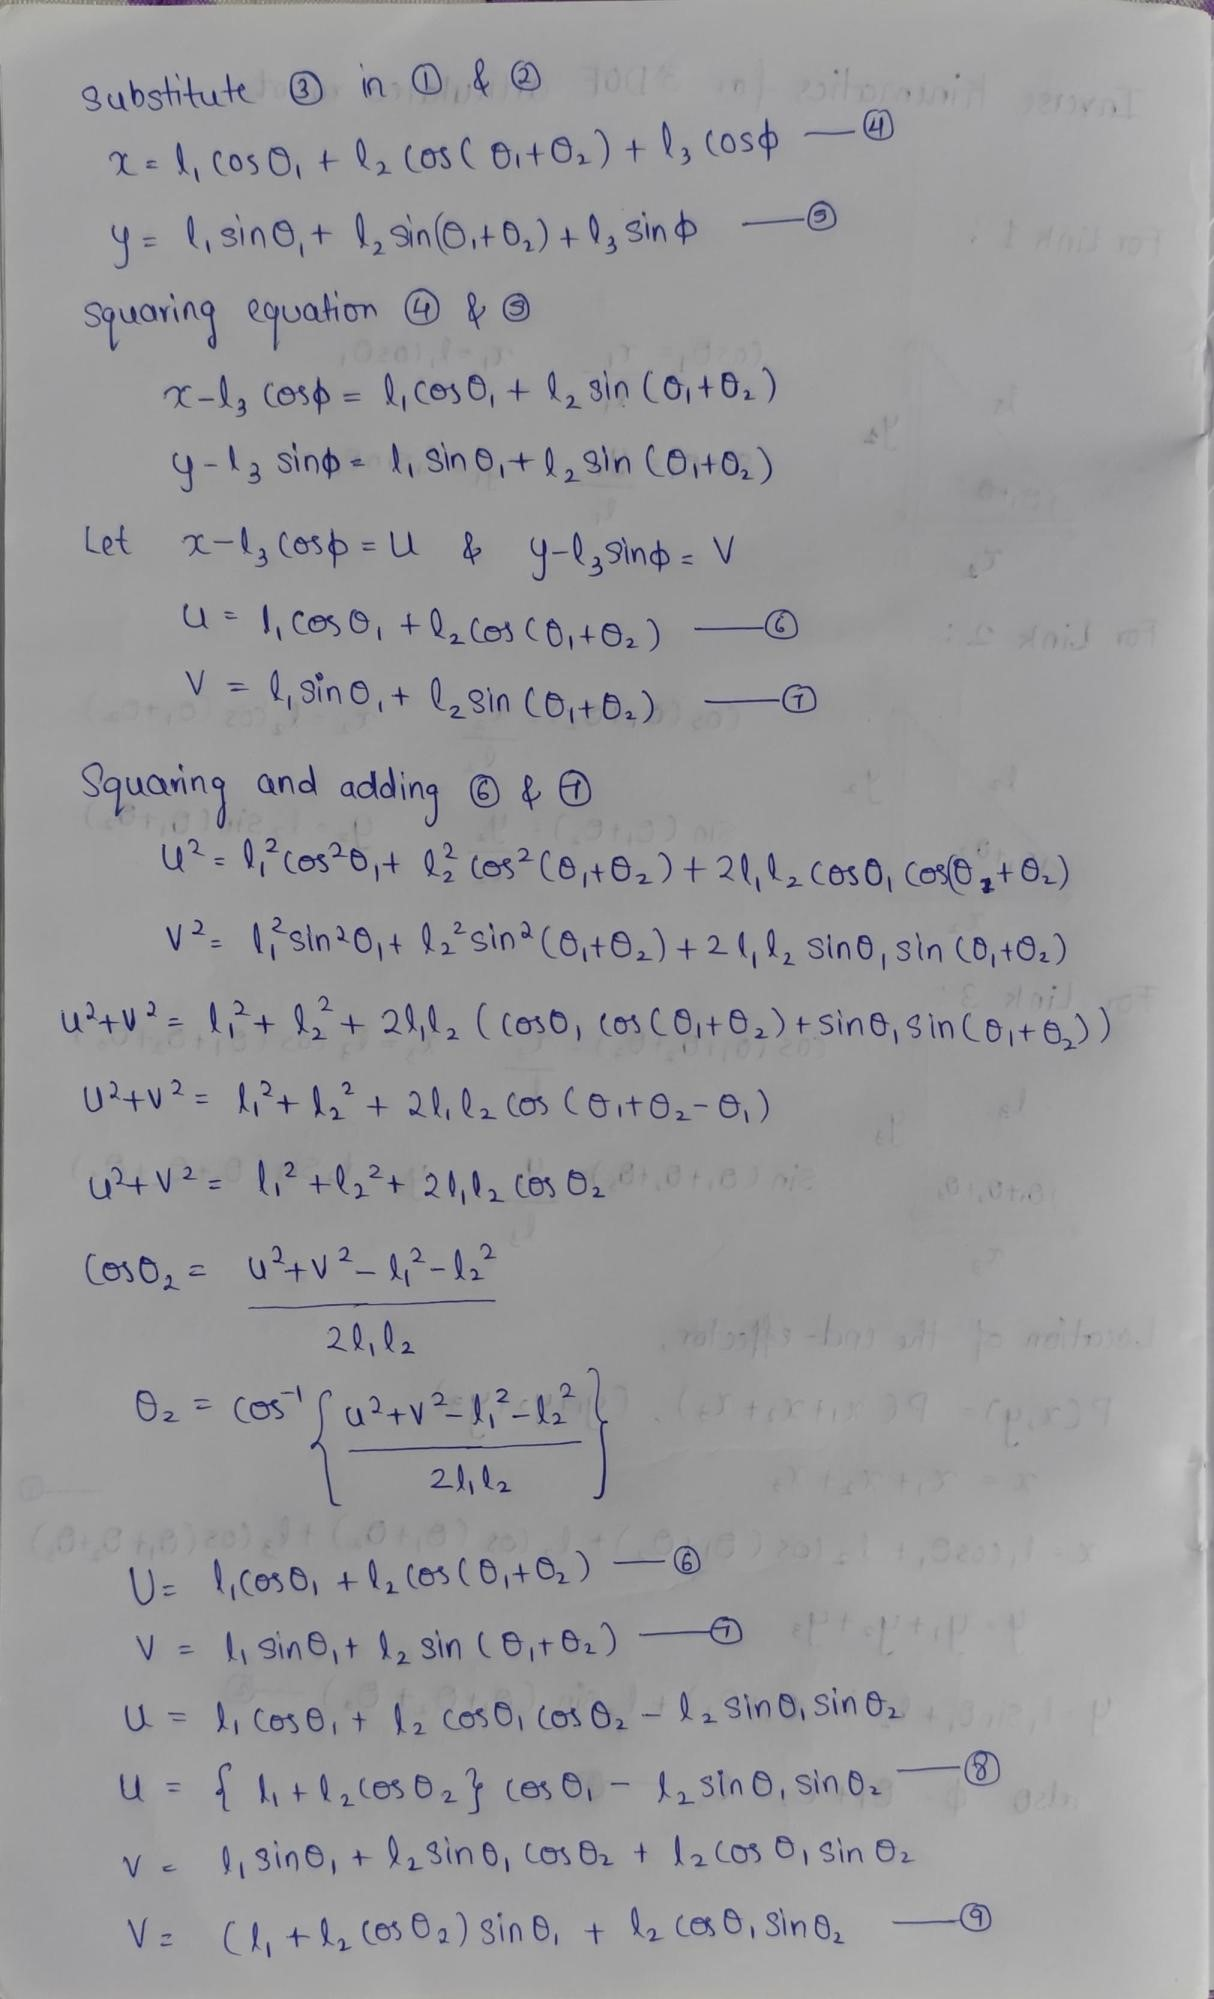 Substitute ③ in ① & ②
x = l₁ cosθ₁ + l₂ cos(θ₁+θ₂) + l₃ cosϕ —④
y = l₁ sinθ₁ + l₂ sin(θ₁+θ₂) + l₃ sinϕ —⑤
Squaring equation ④ & ⑤
x-l₃ cosϕ = l₁ cosθ₁ + l₂ sin (θ₁+θ₂)
y-l₃ sinϕ = l₁ sinθ₁ + l₂ sin (θ₁+θ₂)
Let x-l₃ cosϕ = u & y-l₃ sinϕ = V
u = l₁ cosθ₁ + l₂ cos(θ₁+θ₂) —⑥
V = l₁ sinθ₁ + l₂ sin (θ₁+θ₂) —⑦
Squaring and adding ⑥ & ⑦
u² = l₁² cos²θ₁ + l₂² cos²(θ₁+θ₂) + 2l₁l₂ cosθ₁ cos(θ₂+θ₂)
V² = l₁² sin²θ₁ + l₂² sin²(θ₁+θ₂) + 2l₁l₂ sinθ₁ sin (θ₁+θ₂)
u²+v² = l₁² + l₂² + 2l₁l₂ (cosθ₁ cos(θ₁+θ₂) + sinθ₁ sin(θ₁+θ₂))
U²+V² = l₁² + l₂² + 2l₁l₂ cos (θ₁+θ₂-θ₁)
u²+v² = l₁² + l₂² + 2l₁l₂ cos θ₂
cosθ₂ = u²+v²-l₁²-l₂²
2l₁l₂
θ₂ = cos⁻¹ { u²+v²-l₁²-l₂² }
2l₁l₂
U = l₁ cosθ₁ + l₂ cos(θ₁+θ₂) —⑥
V = l₁ sinθ₁ + l₂ sin (θ₁+θ₂) —⑦
u = l₁ cosθ₁ + l₂ cosθ₁ cosθ₂ - l₂ sinθ₁ sinθ₂
u = { l₁ + l₂ cosθ₂ } cosθ₁ - l₂ sinθ₁ sinθ₂ —⑧
V = l₁ sinθ₁ + l₂ sinθ₁ cosθ₂ + l₂ cosθ₁ sinθ₂
V = (l₁ + l₂ cosθ₂) sinθ₁ + l₂ cosθ₁ sinθ₂ —⑨